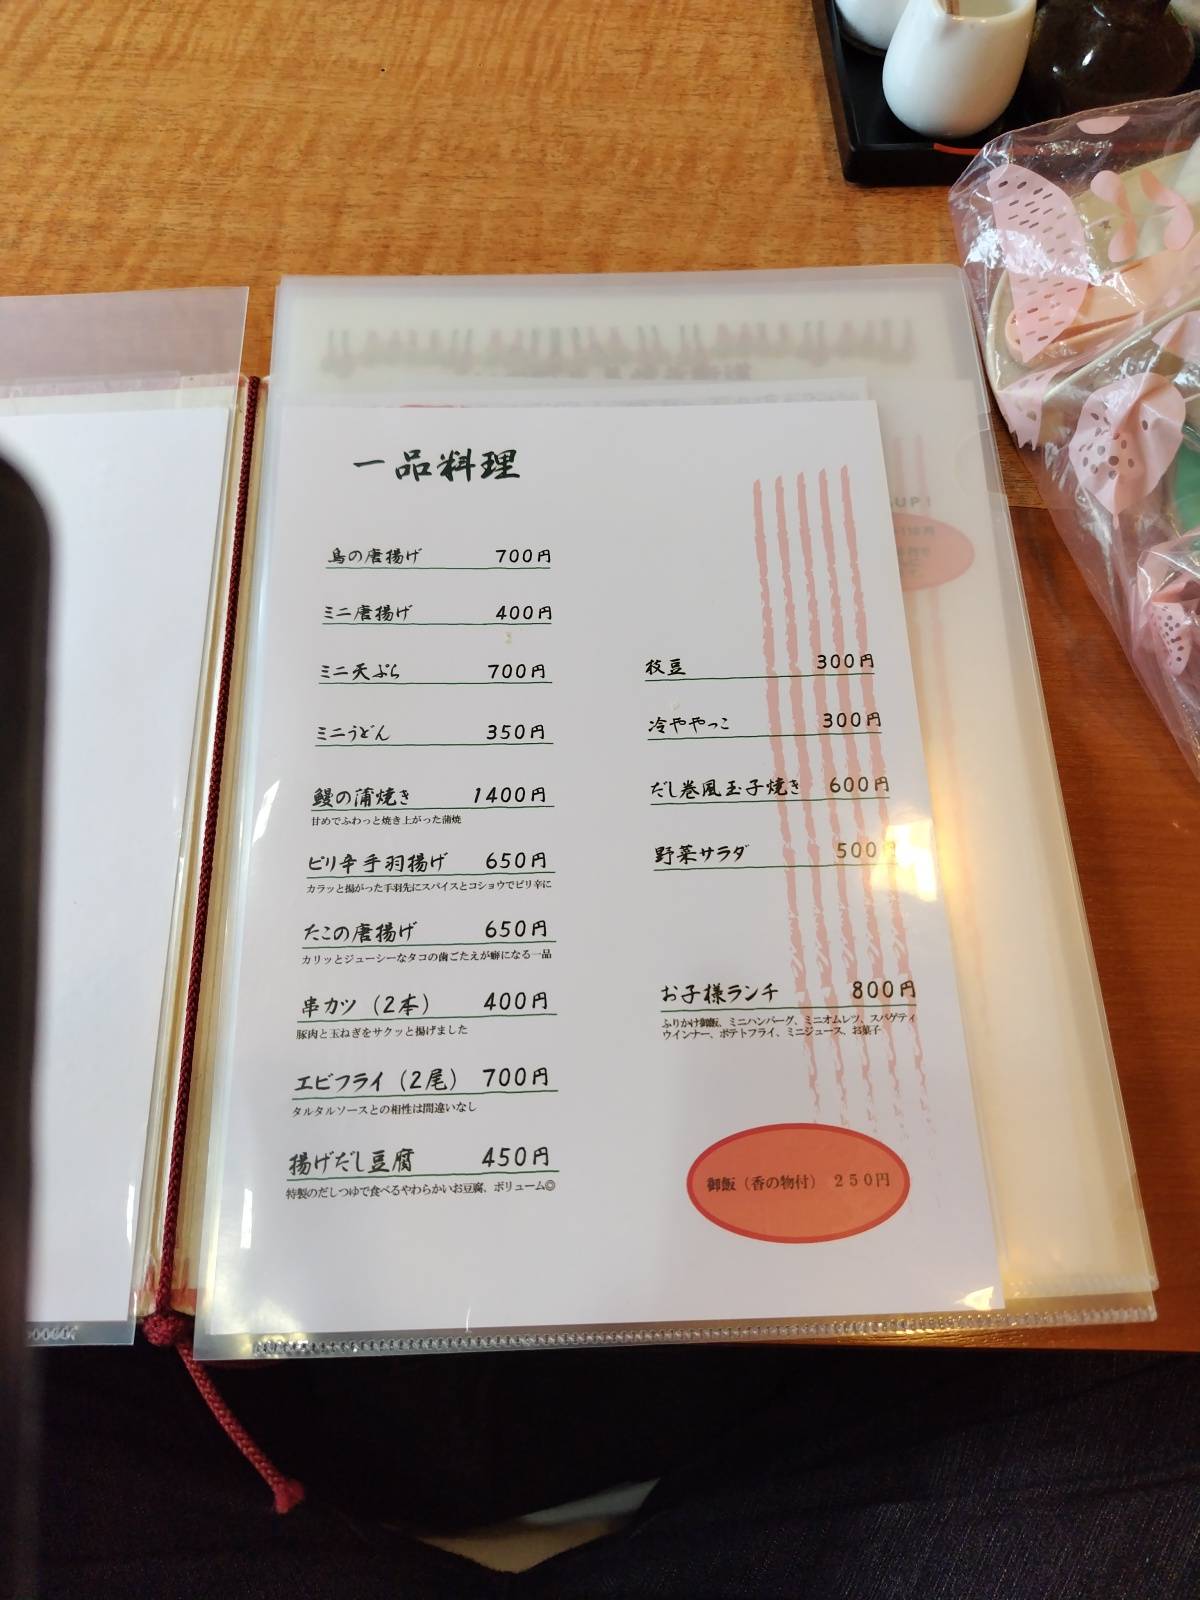 一品料理
鳥の唐揚げ 700円
ミニ唐揚げ 400円
ミニ天ぷら 700円
ミニうどん 350円
鰻の蒲焼き 1400円
甘めでふわっと焼き上がった蒲焼
ピリ辛手羽揚げ 650円
カラッと揚がった手羽先にスパイスとコショウでピリ辛に
たこの唐揚げ 650円
カリッとジューシーなタコの歯ごたえが癖になる一品
串カツ（2本） 400円
豚肉と玉ねぎをサクッと揚げました
エビフライ（2尾） 700円
タルタルソースとの相性は間違いなし
揚げだし豆腐 450円
特製のだしつゆで食べるやわらかいお豆腐、ボリューム◎
枝豆 300円
冷ややっこ 300円
だし巻風玉子焼き 600円
野菜サラダ 500円
お子様ランチ 800円
ふりかけ御飯、ミニハンバーグ、ミニオムレツ、スパゲティ
ウインナー、ポテトフライ、ミニジュース、お菓子
御飯（香の物付） 250円